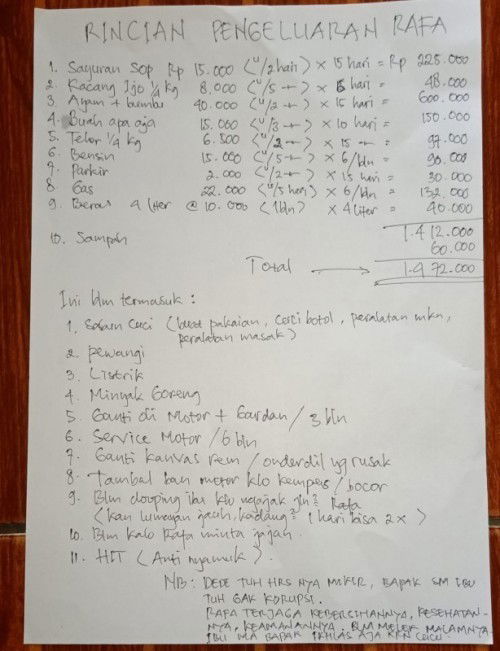 RINCIAN PENGELUARAN RAFA
1. Sayuran Sop Rp 15.000 (u/2 hari) x 15 hari = Rp 225.000
2. Kacang Ijo 1/4 kg 8.000 (u/5 -"-) x 6 hari = 48.000
3. Ayam + bumbu 40.000 (u/2 -"-) x 15 hari = 600.000
4. Buah apa aja 15.000 (u/3 -"-) x 10 hari = 150.000
5. Telor 1/4 kg 6.500 (u/2 -"-) x 15 -"- = 97.000
6. Bensin 15.000 (u/5 -"-) x 6/bln = 90.000
7. Parkir 2.000 (u/2 -"-) x 15 hari = 30.000
8. Gas 22.000 (u/5 hari) x 6/bln = 132.000
9. Beras 4 liter @ 10.000 (1 bln) x 4 liter = 40.000
1.412.000
10. Sampah 60.000
Total → 1.472.000
Ini blm termasuk :
1. Sabun Cuci (buat pakaian, cuci botol, peralatan mkn,
peralatan masak)
2. pewangi
3. Listrik
4. Minyak Goreng
5. Ganti oli Motor + Gardan / 3 bln
6. Service Motor / 6 bln
7. Ganti kanvas rem / onderdil yg rusak
8. Tambal ban motor klo kempes / bocor
9. Blm dauping ibu klo ngajak jln2 Rafa
(kan lumayan jauh, kadang2 1 hari bisa 2x)
10. Blm kalo Rafa minta jajan.
11. HIT (Anti nyamuk).
NB: DEDE TUH HRS NYA MIKIR, BAPAK SM IBU
TUH GAK KORUPSI.
RAFA TERJAGA KEBERSIHANNYA, KESEHATAN-
NYA, KEAMANANNYA. BLM MELEK MALAMNYA.
IBU MA BAPAK IKHLAS AJA KRN CUCU.